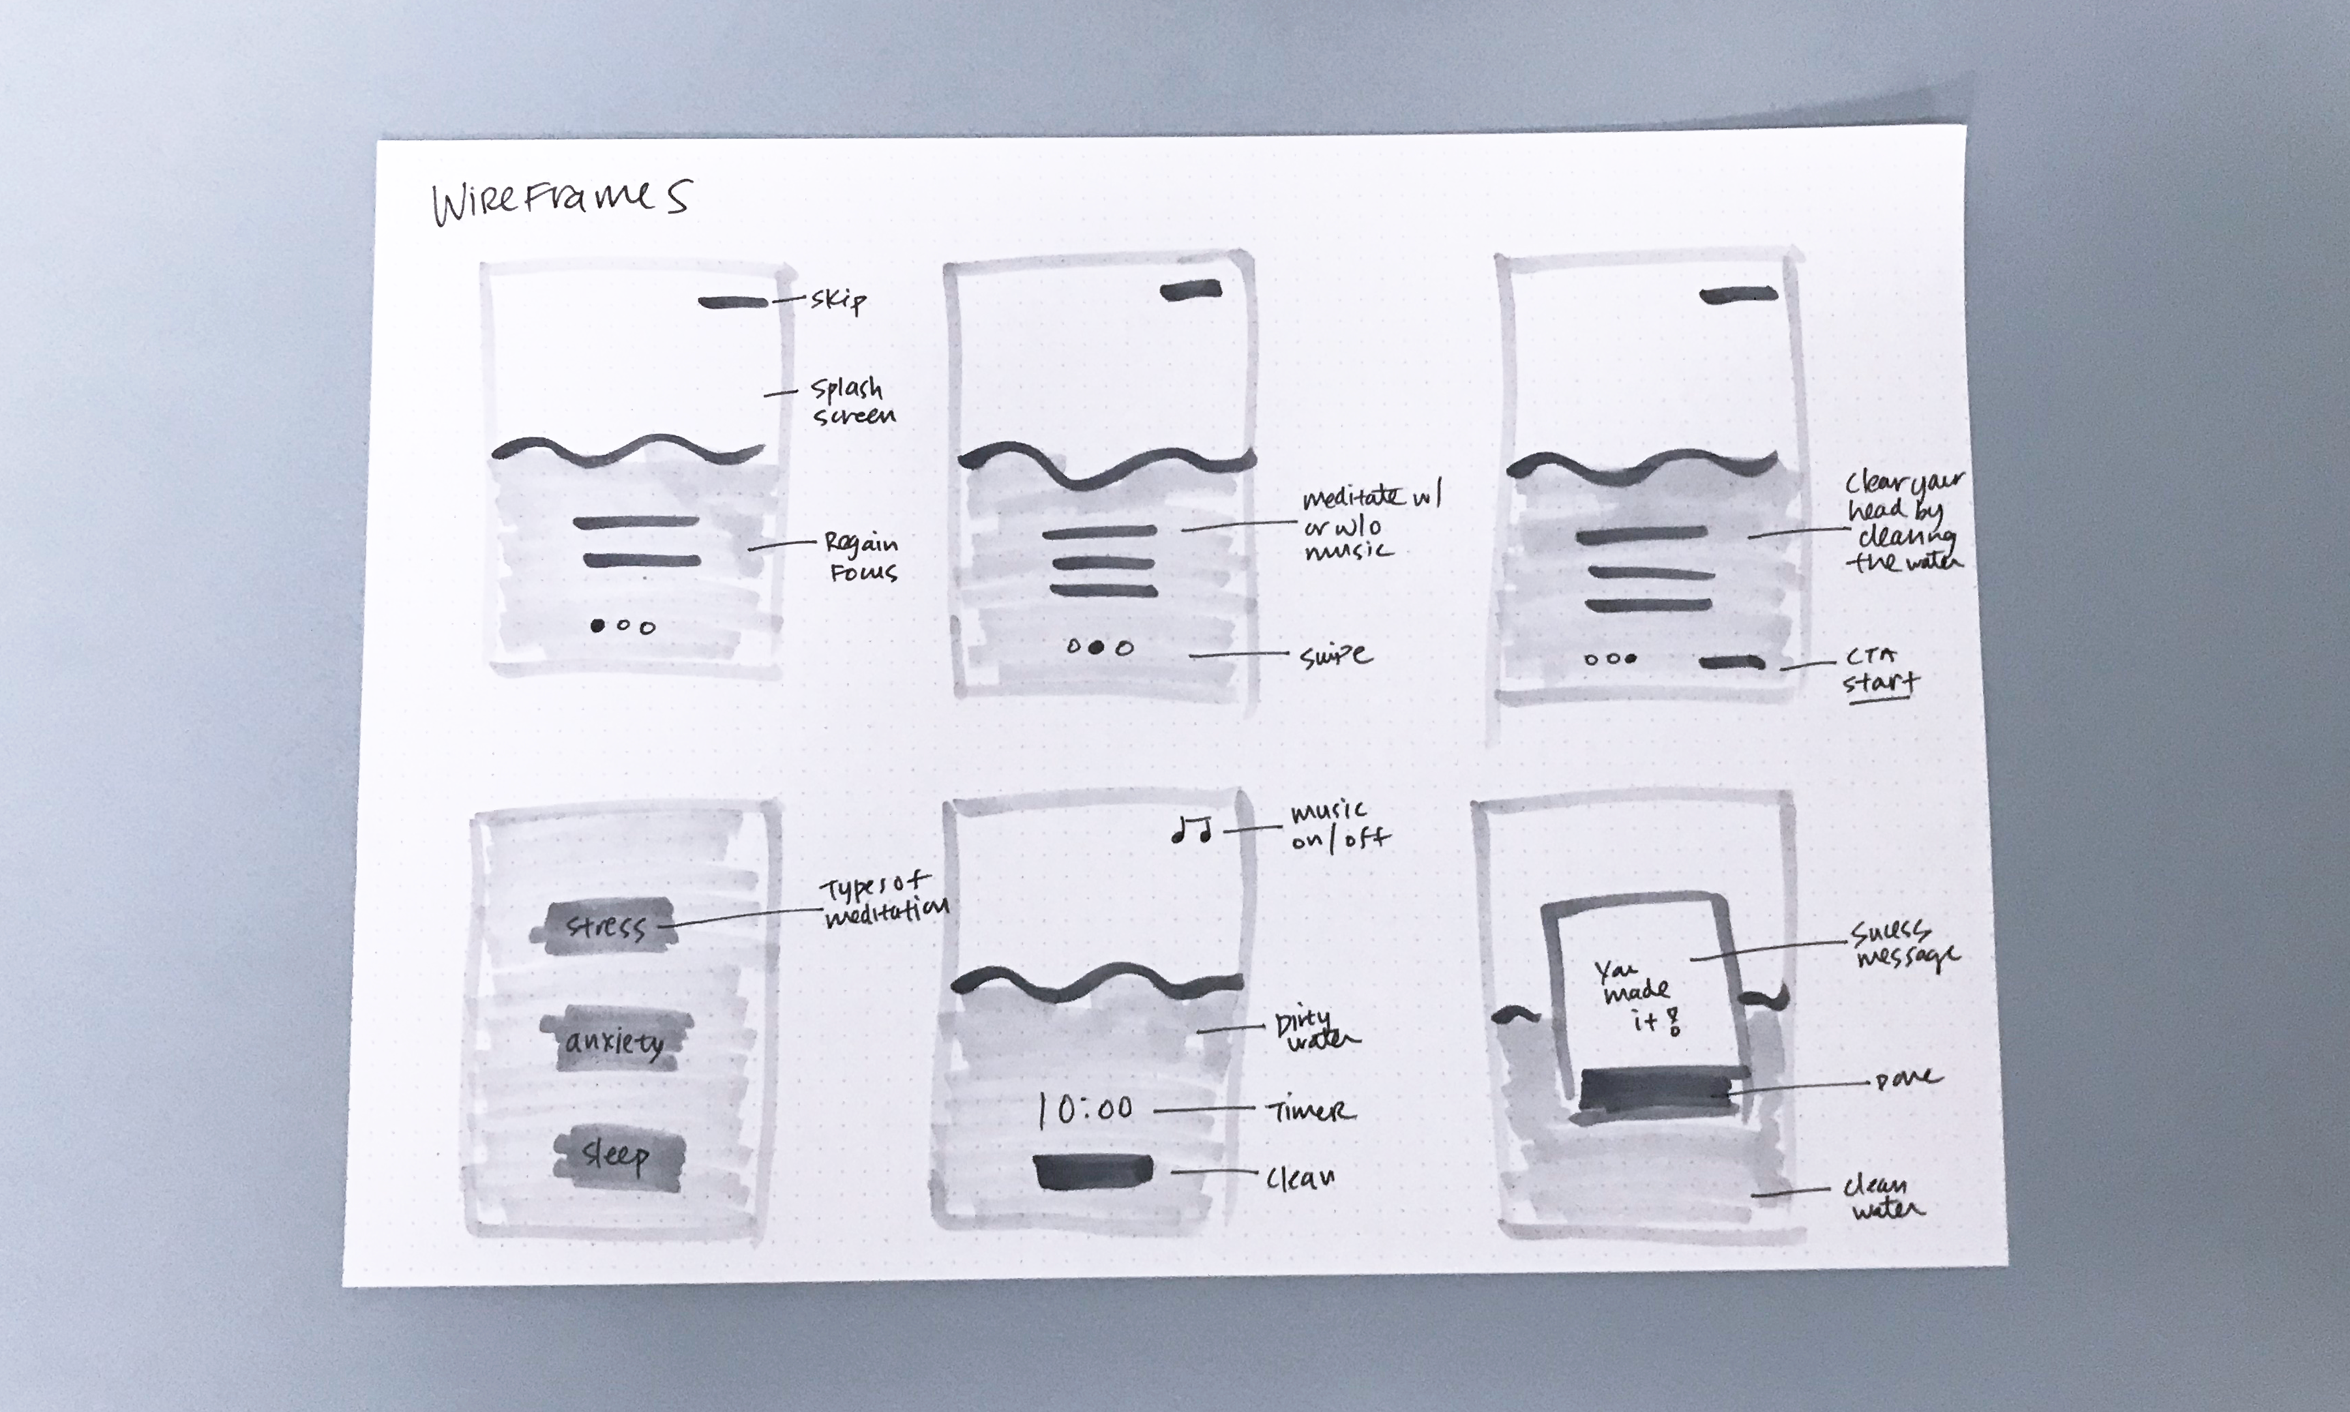 WIREFRAMES
skip
splash
screen
Regain
Focus
meditate w/
or w/o
music
swipe
Clear your
head by
cleaning
the water
CTA
start
stress
anxiety
sleep
Types of
meditation
music
on/off
Dirty
water
10:00
TIMER
clean
You
made
it!
Sucess
message
Done
clean
water